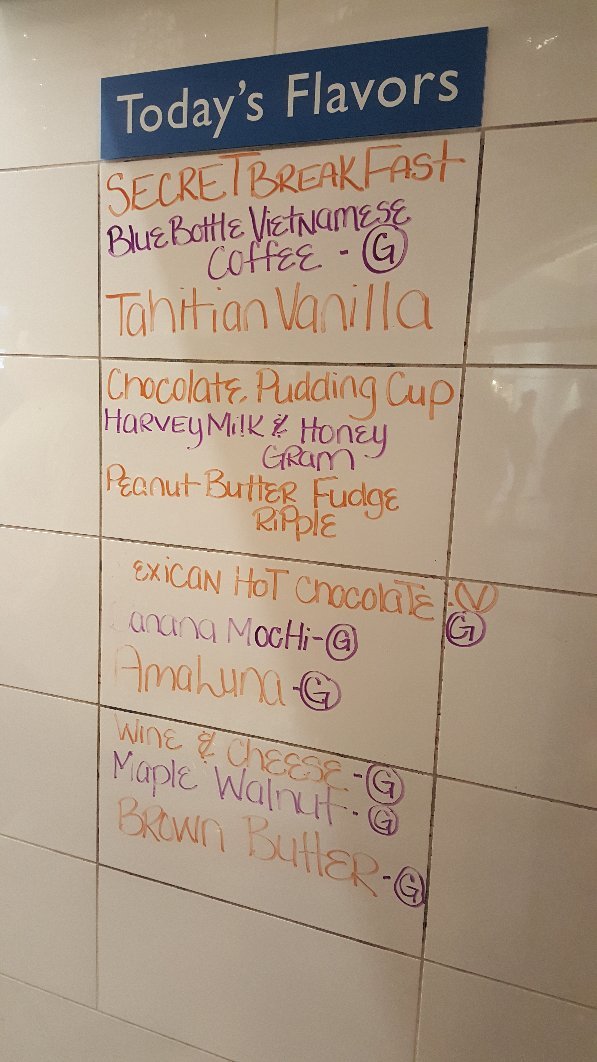 Today's Flavors
SECRET BREAKFast
BluE BottlE ViEtNamESE
COffEE - G
Tahitian Vanilla
ChocolatE Pudding Cup
HARVEy Milk & HonEy
GRam
PEanut ButtER FudgE
RippLE
ExiCAN HOT ChocolaTE - V
G
anana MOCHi - G
AmaLuna - G
WinE & ChEESE - G
MaplE Walnut - G
BROWN ButtER - G